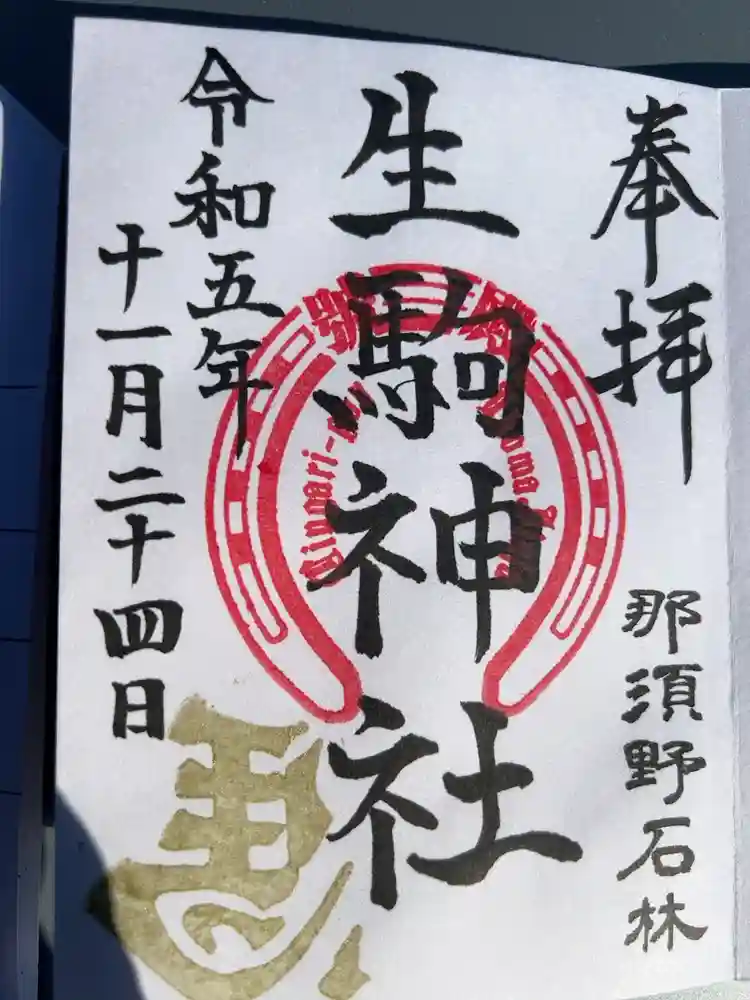 奉拝
那須野石林
生駒神社
令和五年
十一月二十四日